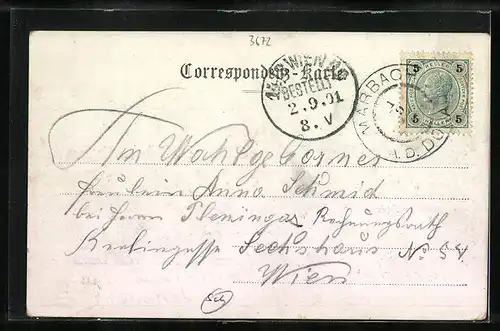 3672
Correspondenz-Karte
WIEN
BESTELLT
2.9.01
8.V
MARBACH
A.D. DO
5 5
5 5
An Wohlgebornes
Fräulein Anna Schmid
bei Herrn Fleminger Rechnungsrath
Sechshaus No 54
Wien